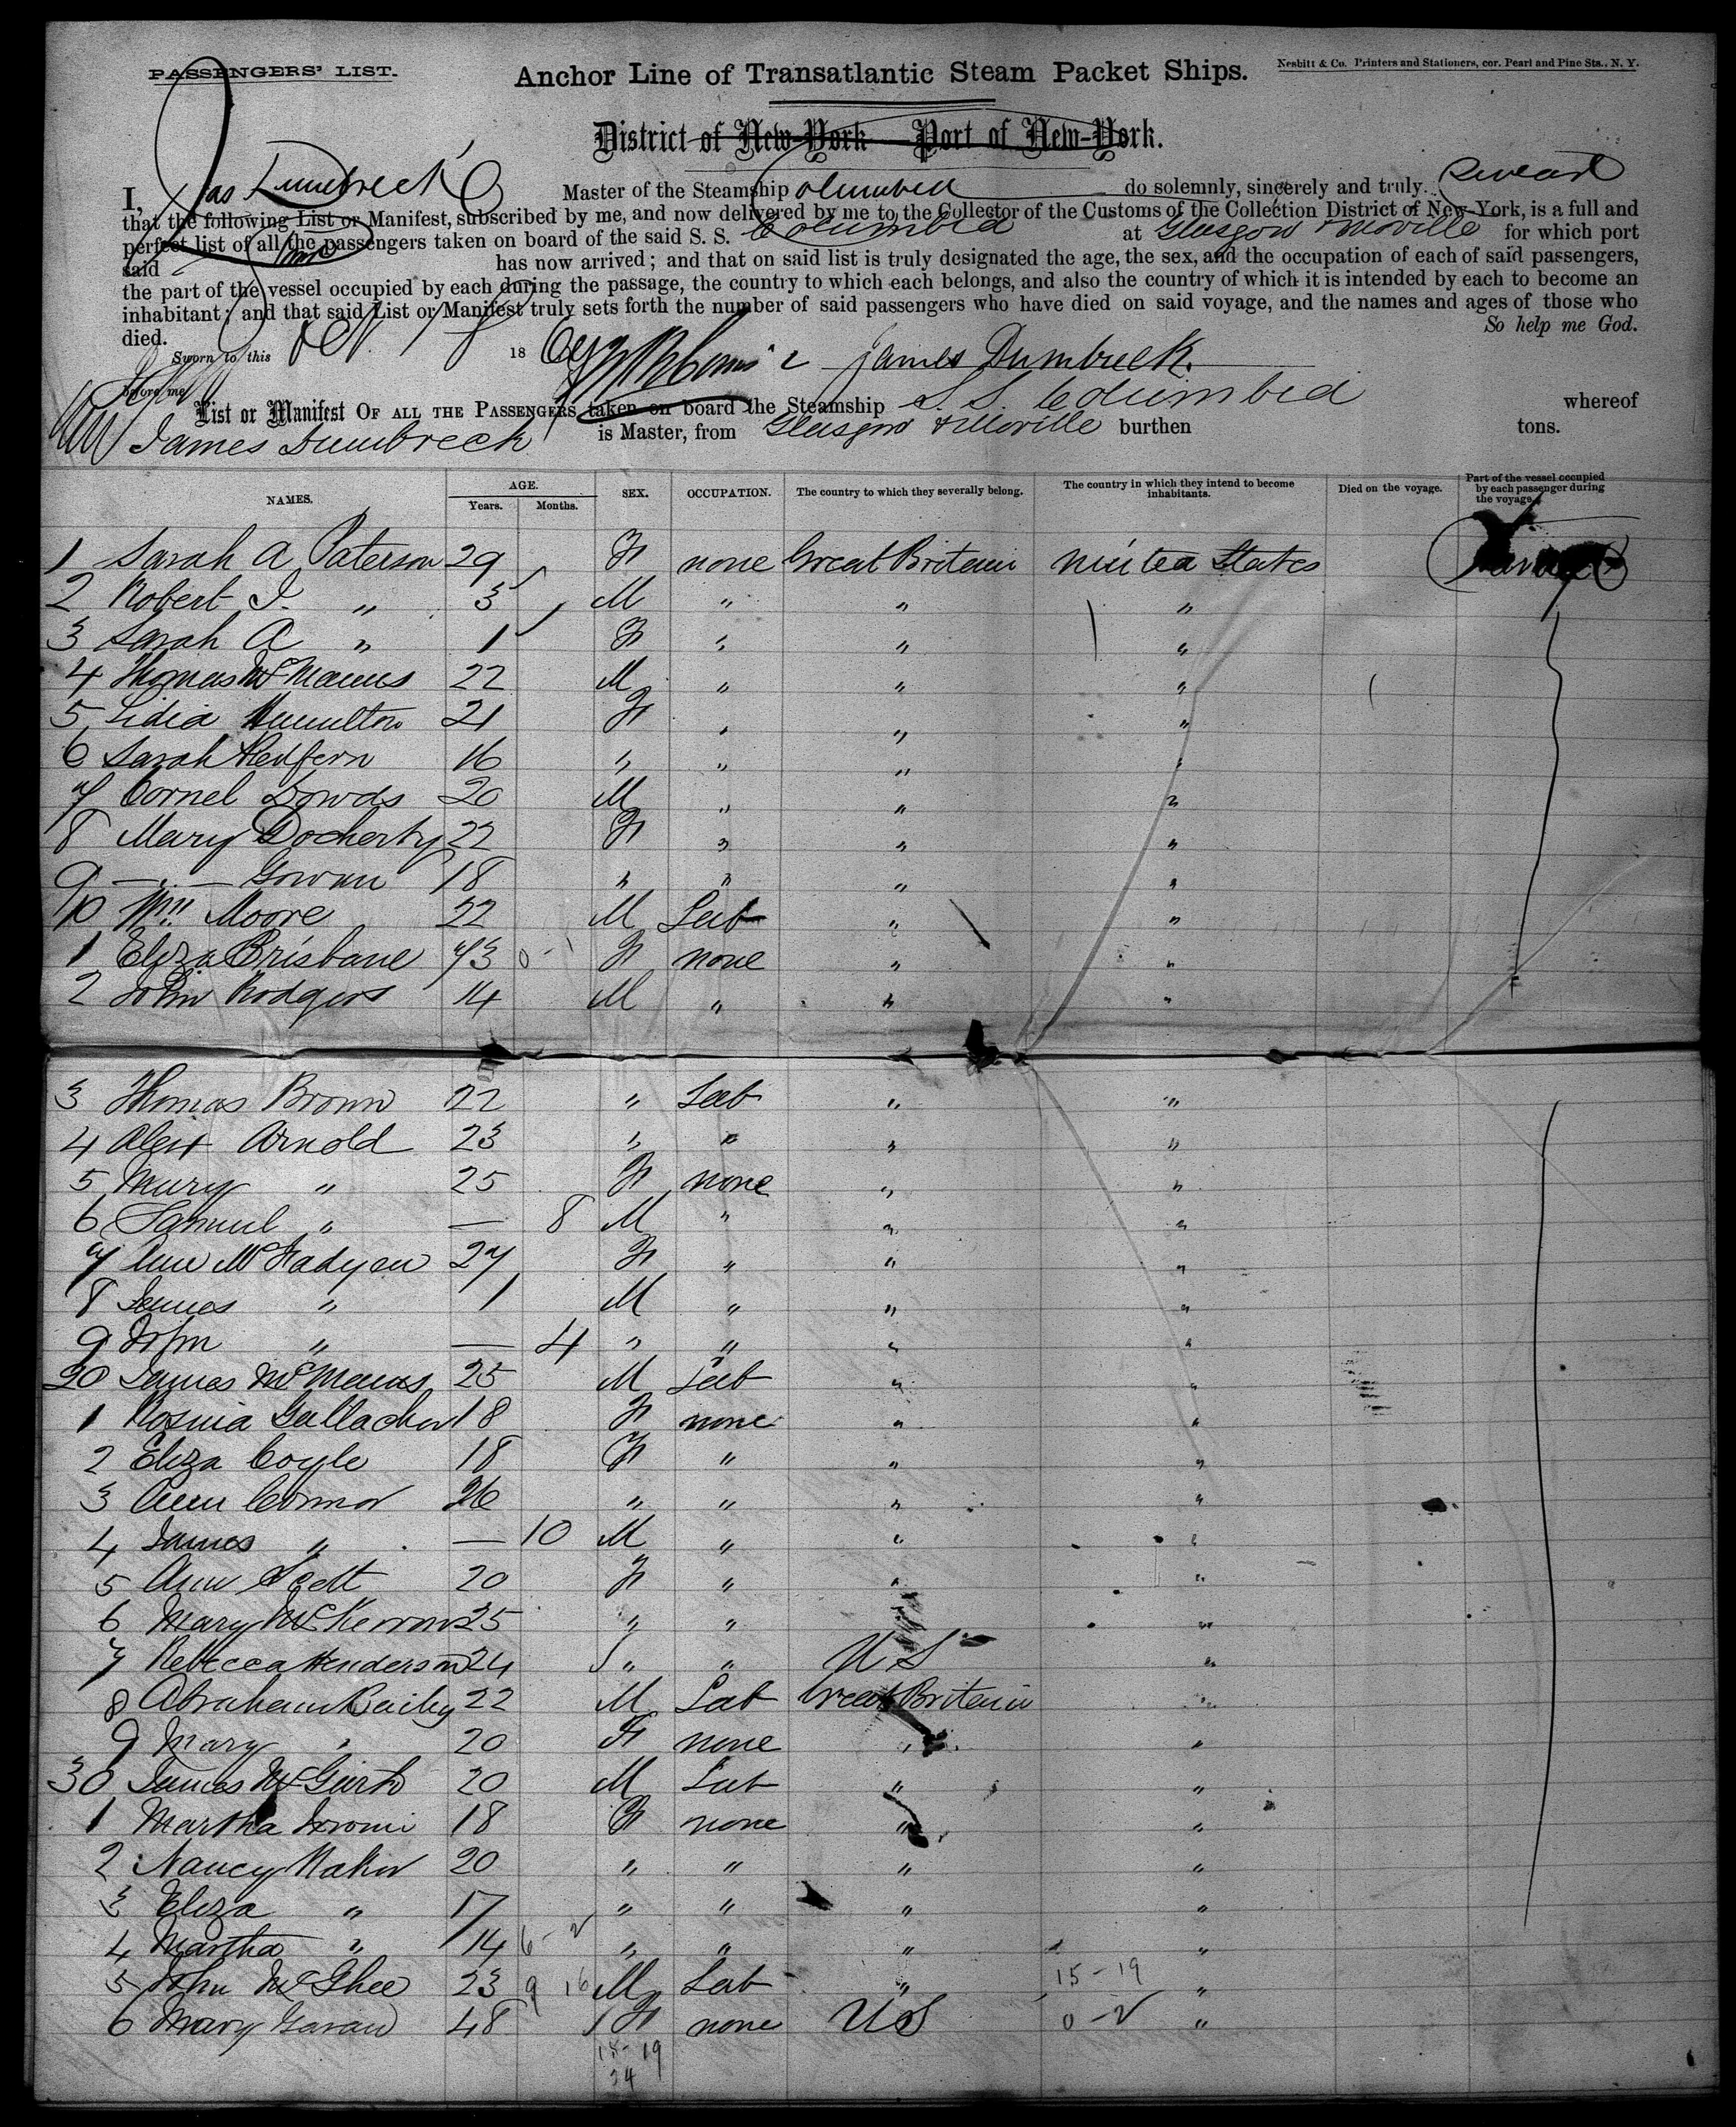 PASSENGERS' LIST.
Anchor Line of Transatlantic Steam Packet Ships.
Nesbitt & Co. Printers and Stationers, cor. Pearl and Pine Sts., N. Y.
District of New-York — Port of New-York.
I, Jas Dumbreck Master of the Steamship Columbia do solemnly, sincerely and truly swear
that the following List or Manifest, subscribed by me, and now delivered by me to the Collector of the Customs of the Collection District of New-York, is a full and
perfect list of all the passengers taken on board of the said S. S. Columbia at Glasgow & Moville for which port
said has now arrived; and that on said list is truly designated the age, the sex, and the occupation of each of said passengers,
the part of the vessel occupied by each during the passage, the country to which each belongs, and also the country of which it is intended by each to become an
inhabitant; and that said List or Manifest truly sets forth the number of said passengers who have died on said voyage, and the names and ages of those who
died. So help me God.
Sworn to this 18 James Dumbreck
before me
List or Manifest OF ALL THE PASSENGERS taken on board the Steamship S. S. Columbia whereof
James Dumbreck is Master, from Glasgow & Moville burthen tons.
NAMES. AGE. Years. Months. SEX. OCCUPATION. The country to which they severally belong. The country in which they intend to become inhabitants. Died on the voyage. Part of the vessel occupied by each passenger during the voyage.
1 Sarah A Paterson 29 F none Great Britain United States
2 Robert J. " 3 M " " "
3 Sarah A " 1 F " " "
4 Thomas McManus 22 M " " "
5 Lidia Hamilton 21 F " " "
6 Sarah Redfern 16 " " " "
7 Cornel Dowds 20 M " " "
8 Mary Docherty 22 F " " "
9 — " — Gowan 18 " " " "
10 Wm Moore 22 M Lab " "
1 Eliza Brisbane 43 F none " "
2 John Rodgers 14 M " " "
3 Thomas Brown 22 " Lab " "
4 Alext Arnold 23 " " " "
5 Mary " 25 F none " "
6 Samuel " — 8 M " " "
7 Ann McFadyen 27 F " " "
8 James " 1 M " " "
9 John " — 4 " " " "
20 James McManus 25 M Lab " "
1 Rosina Gallacher 18 F none " "
2 Eliza Coyle 18 F " " "
3 Ann Connor 26 " " " "
4 James " — 10 M " " "
5 Ann Scott 20 F " " "
6 Mary McKerrow 25 " " " "
7 Rebecca Henderson 24 " " U S "
8 Abraham Baily 22 M Lab Great Britain "
9 Mary " 20 F none " "
30 James 20 M Lab " "
1 Martha 18 F none " "
2 Nancy 20 " " " "
3 Eliza " 17 " " " "
4 Martha " 14 6 - 2 " " " "
5 John McGhee 23 9 16 M Lab " 15 - 19 "
6 Mary 48 F none U S 0 - 2 "
18 - 19
24